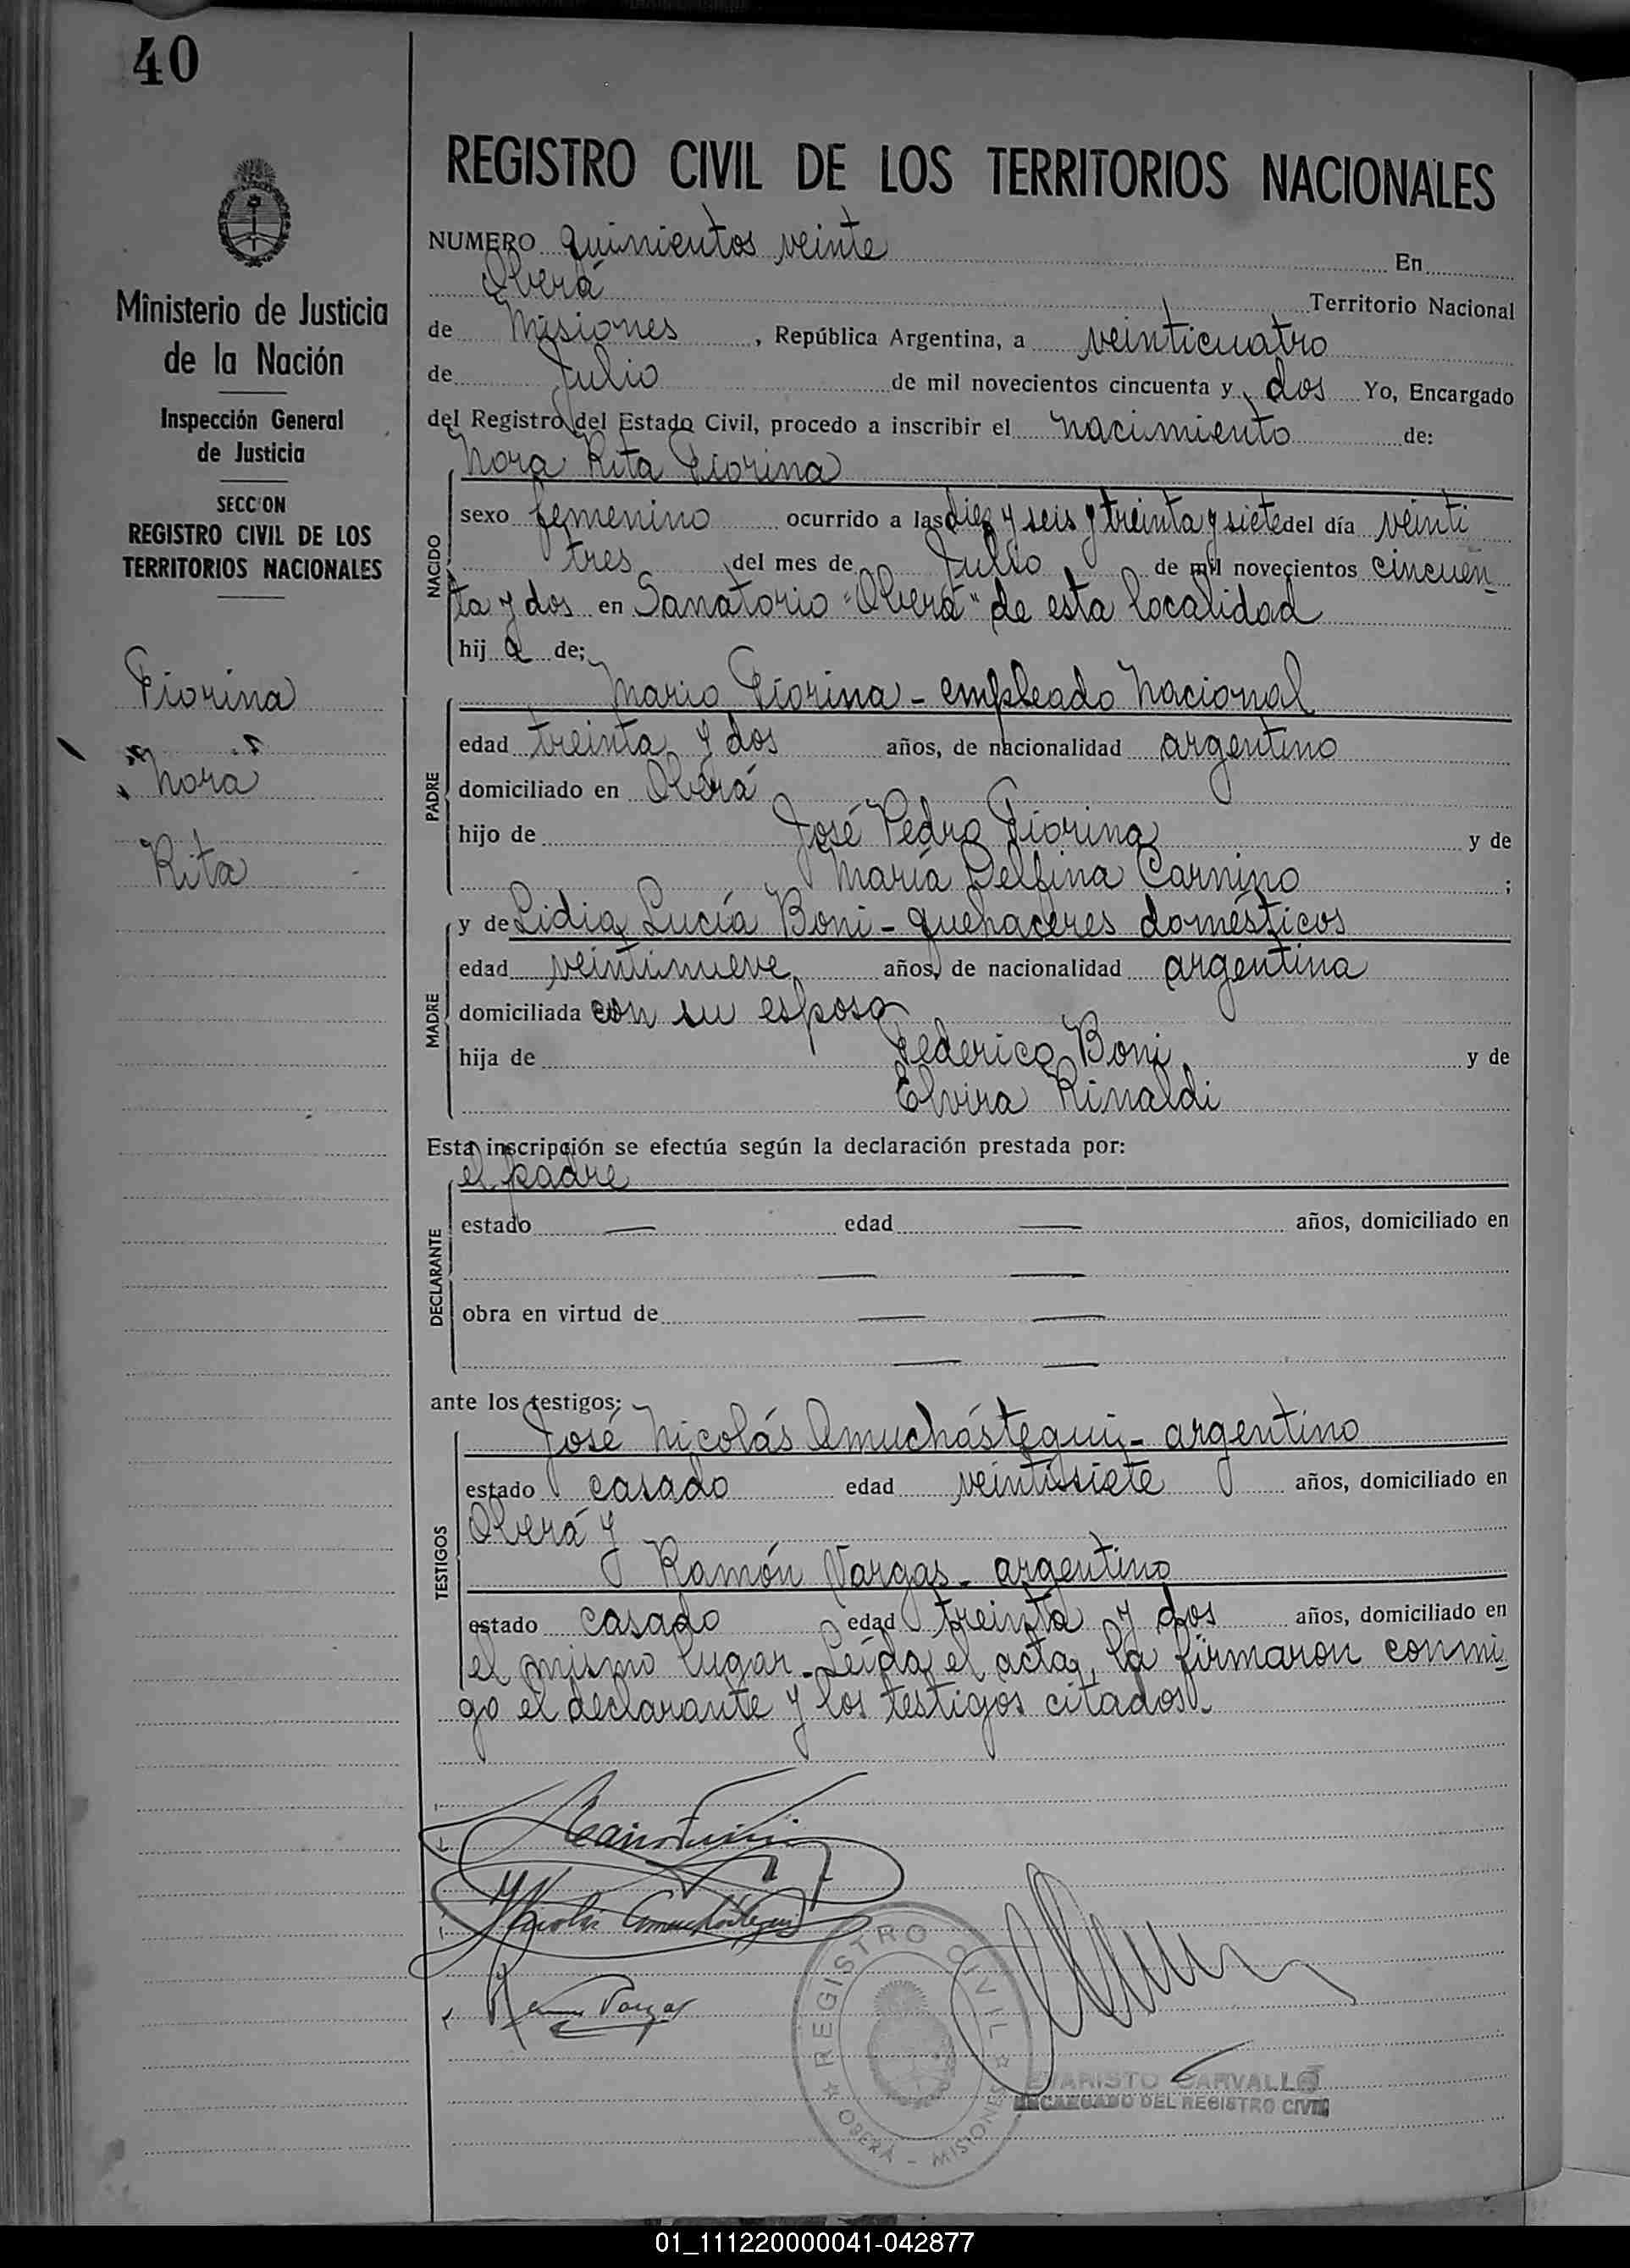 40
Ministerio de Justicia
de la Nación
Inspección General
de Justicia
SECCION
REGISTRO CIVIL DE LOS
TERRITORIOS NACIONALES
Fiorina
"Nora"
Rita
REGISTRO CIVIL DE LOS TERRITORIOS NACIONALES
NUMERO quinientos veinte En
Oberá Territorio Nacional
de Misiones, República Argentina, a veinticuatro
de Julio de mil novecientos cincuenta y dos Yo, Encargado
del Registro del Estado Civil, procedo a inscribir el nacimiento de:
Nora Rita Fiorina
NACIDO
sexo femenino ocurrido a las diez y seis y treinta y siete del día veinti
tres del mes de Julio de mil novecientos cincuen
ta y dos en Sanatorio "Oberá" de esta localidad
hij a de:
PADRE
Mario Fiorina - empleado Nacional
edad treinta y dos años, de nacionalidad argentino
domiciliado en Oberá
hijo de José Pedro Fiorina y de
María Delfina Carnino ;
MADRE
y de Lidia Lucía Boni - quehaceres domésticos
edad veintinueve años, de nacionalidad argentina
domiciliada con su esposo
hija de Federico Boni y de
Elvira Rinaldi
Esta inscripción se efectúa según la declaración prestada por:
el padre
DECLARANTE
estado — edad — años, domiciliado en
— —
obra en virtud de — —
— —
ante los testigos:
TESTIGOS
José Nicolás Amuchástegui - argentino
estado casado edad veintisiete años, domiciliado en
Oberá y
Ramón Vargas - argentino
estado casado edad treinta y dos años, domiciliado en
el mismo lugar - Leída el acta, la firmaron conmi
go el declarante y los testigos citados.-
Nicolás Amuchástegui
Ramon Vargas
REGISTRO CIVIL
OBERÁ - MISIONES
EVARISTO CARVALLO
ENCARGADO DEL REGISTRO CIVIL
01_111220000041-042877